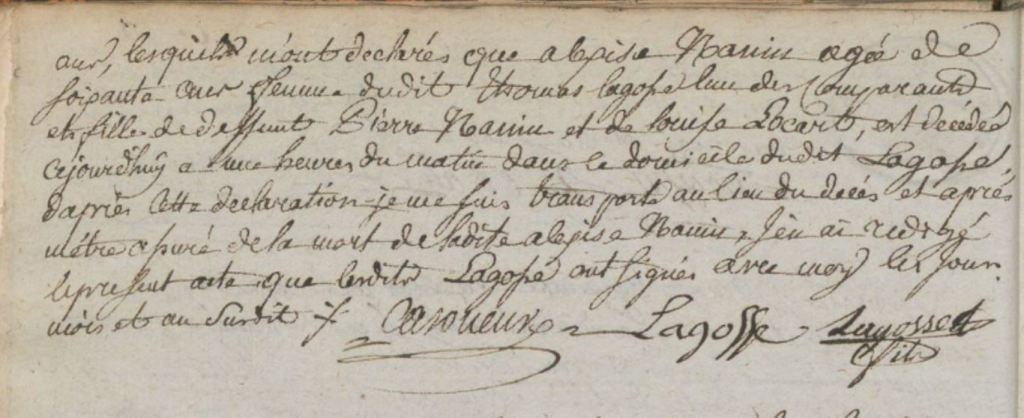 ans, lesquels m'ont declarés que alexise Nanin agée de
soixante ans femme dudit thomas lagosse l'un des Comparants
et fille de deffunt Pierre Nanin et de louise Locart, est décédée
cejourd'huy a une heures du matin dans le domicile dudit Lagosse
d'après cette declaration je me suis transporté au lieu du decés et après
m'étre assuré de la mort de ladite alexise Nanin, j'en ai redigé
le present acte que lesdits Lagosse ont signés avec moy les jour
mois et an susdit
Lagosse
fils